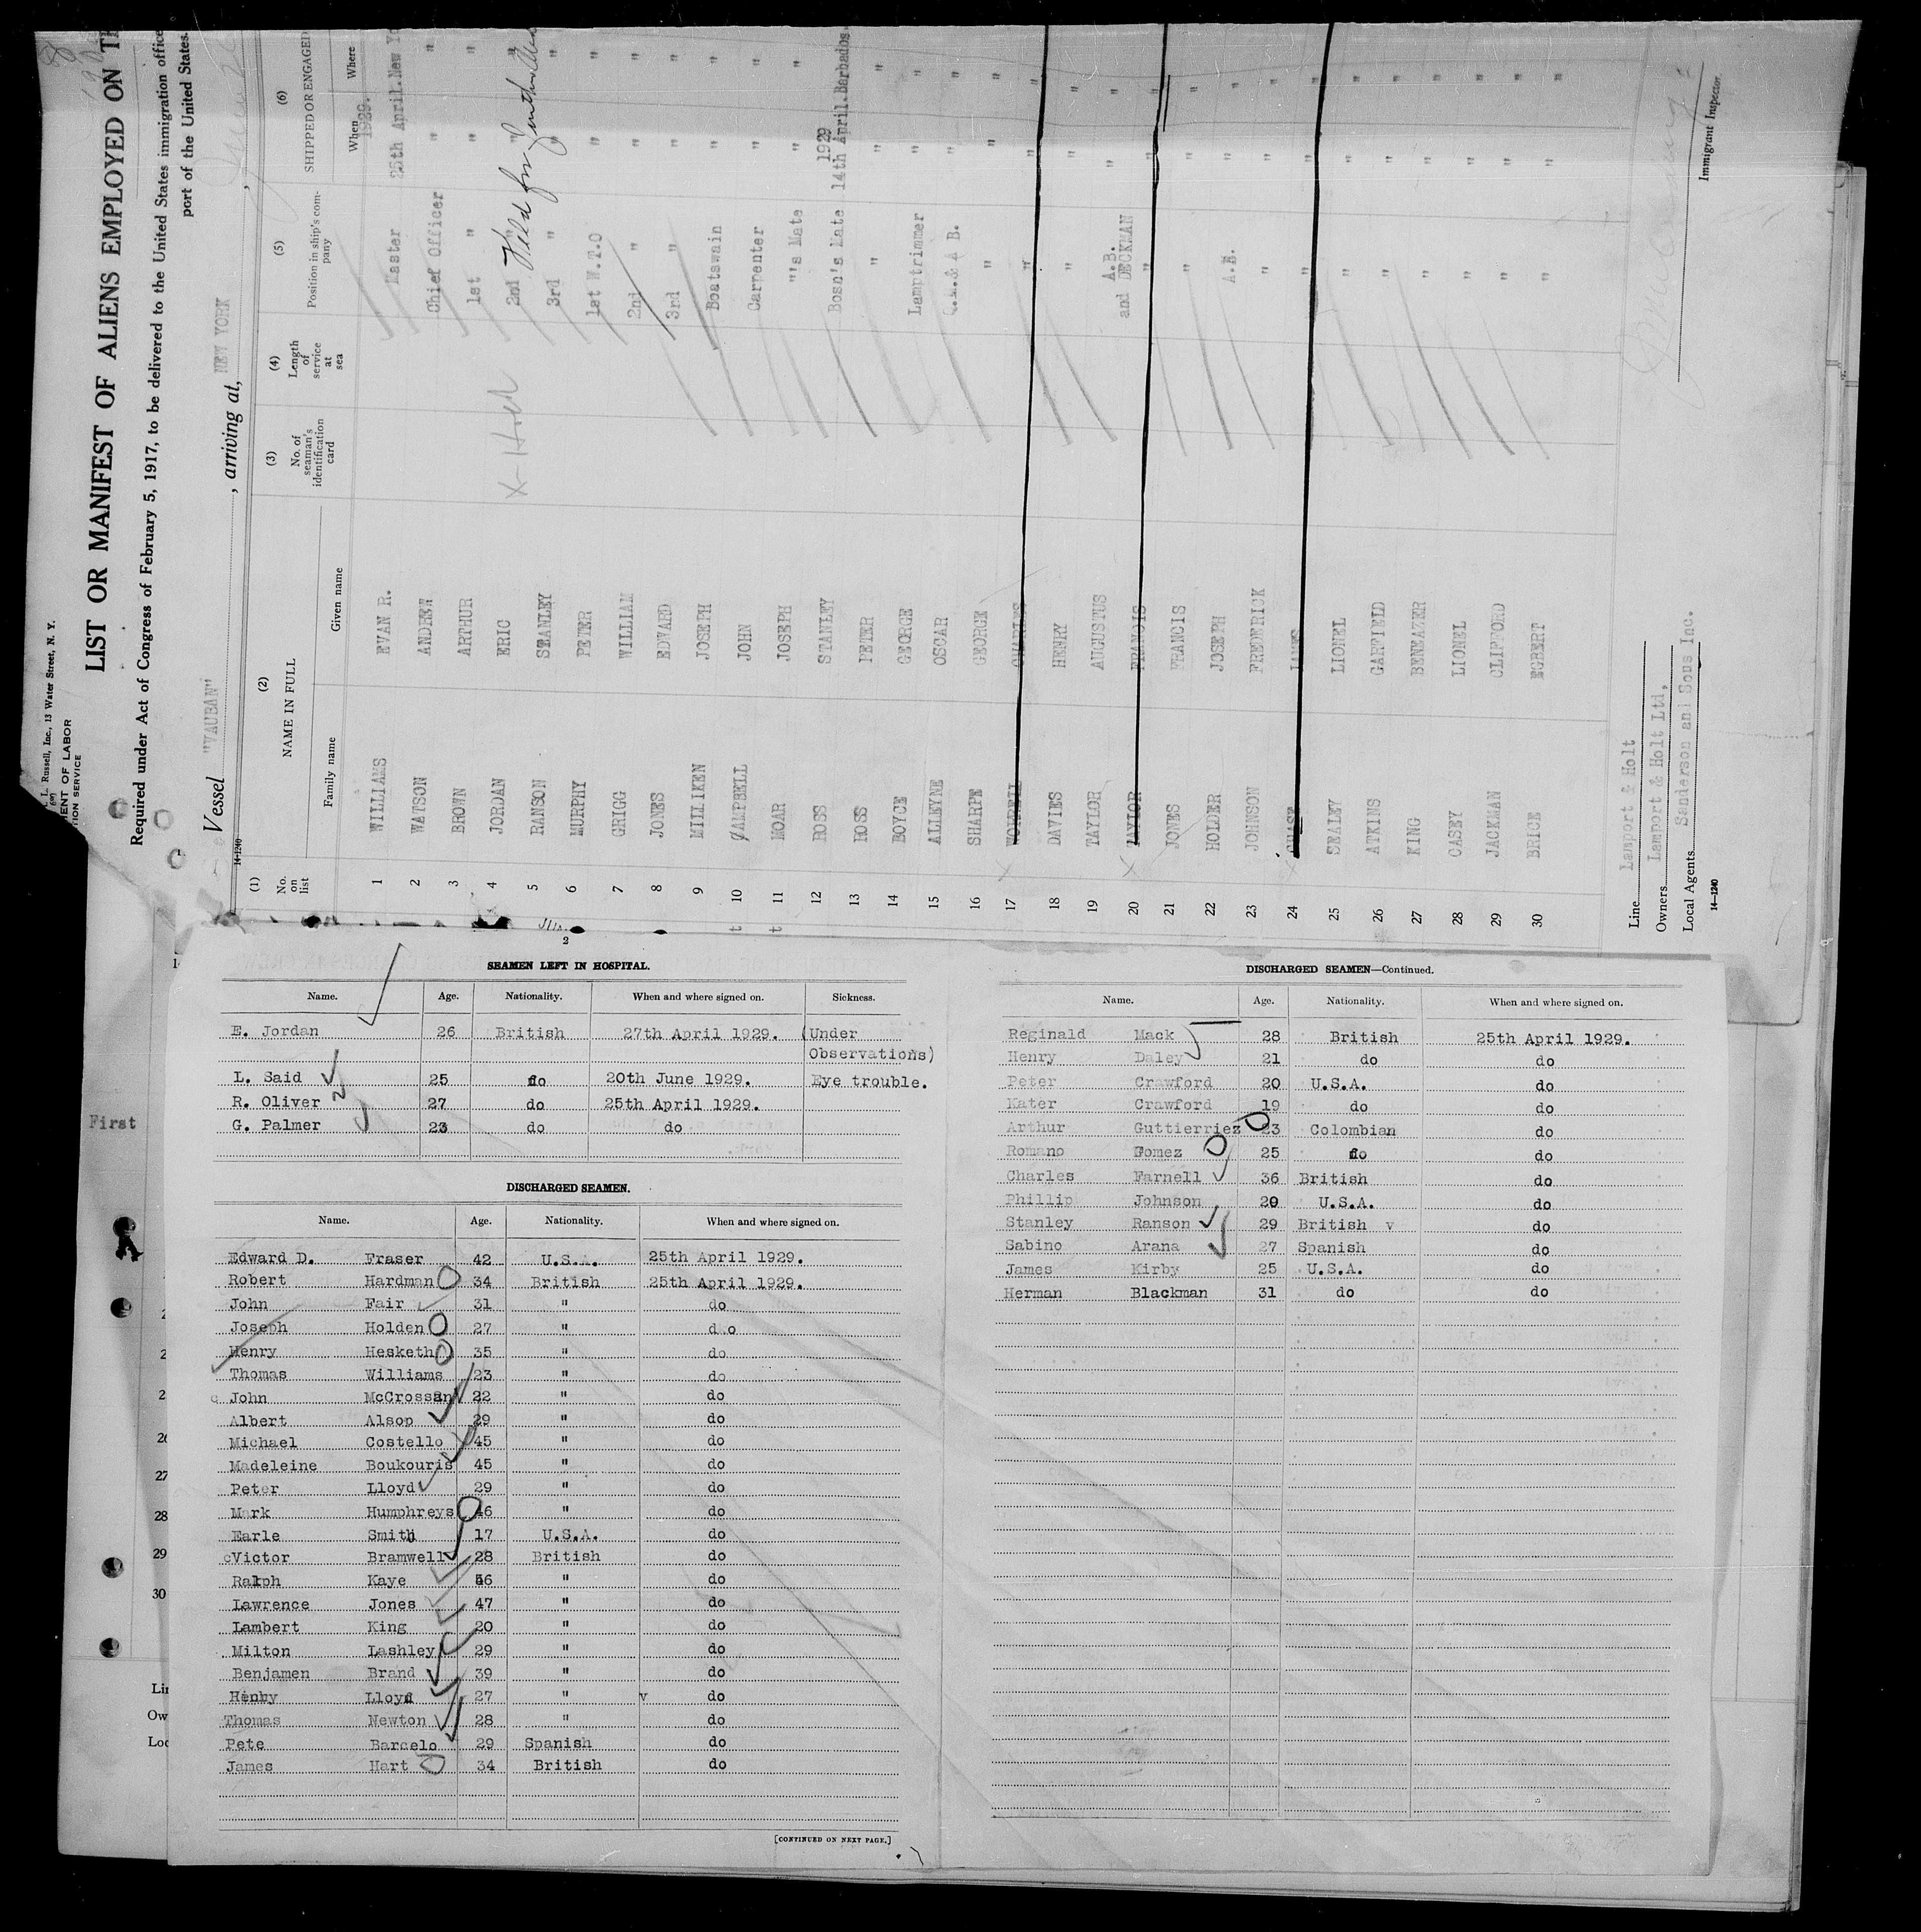 L. Russell, Inc., 13 Water Street, N. Y.
ENT OF LABOR
TION SERVICE
LIST OR MANIFEST OF ALIENS EMPLOYED ON TH
Required under Act of Congress of February 5, 1917, to be delivered to the United States immigration office
port of the United States.
Vessel "VAUBAN" , arriving at, NEW YORK ,
14-1240
(1) No. on list
(2) NAME IN FULL Family name Given name
(3) No. of seaman's identification card
(4) Length of service at sea
(5) Position in ship's company
(6) SHIPPED OR ENGAGED When Where
1929.
1 WILLIAMS EVAN R. Master 25th April. New Y
2 WATSON ANDREW Chief Officer " "
3 BROWN ARTHUR 1st " " "
4 JORDAN ERIC X-Hosd 2nd " " " Held for
5 RANSON STANLEY 3rd " " "
6 MURPHY PETER 1st W.T.O " "
7 GRIGG WILLIAM 2nd " " "
8 JONES EDWARD 3rd " " "
9 MILLIKEN JOSEPH Boatswain " "
10 CAMPBELL JOHN Carpenter " "
11 MOAR JOSEPH "'s Mate " "
1929
12 ROSS STANLEY Bosn's Mate 14th April. Barbados.
13 ROSS PETER " " "
14 BOYCE GEORGE Lamptrimmer " "
15 ALLEYNE OSCAR Q.M.& A B. " "
16 SHARPE GEORGE " " "
17 WORRELL CHARLES " " "
18 DAVIES HENRY " " "
19 TAYLOR AUGUSTUS A.B. and DECKMAN " "
20 TAYLOR FRANCIS " " "
21 JONES FRANCIS " " "
22 HOLDER JOSEPH A.B. " "
23 JOHNSON FREDERICK " " "
24 CHASE JAMES " " "
25 SEALEY LIONEL " " "
26 ATKINS GARFIELD " " "
27 KING BENEAZER " " "
28 CASEY LIONEL " " "
29 JACKMAN CLIFFORD " " "
30 BRICE EGBERT " " "
Line Lamport & Holt
Owners Lamport & Holt Ltd,
Local Agents Sanderson and Sons Inc.
14-1240
Immigrant Inspector
First
2
SEAMEN LEFT IN HOSPITAL.
Name. Age. Nationality. When and where signed on. Sickness.
E. Jordan 26 British 27th April 1929. (Under
Observations)
L. Said 25 do 20th June 1929. Eye trouble.
R. Oliver 27 do 25th April 1929.
G. Palmer 23 do do
DISCHARGED SEAMEN.
Name. Age. Nationality. When and where signed on.
Edward D. Fraser 42 U.S.A. 25th April 1929.
Robert Hardman 34 British 25th April 1929.
John Fair 31 " do
Joseph Holden 27 " d.o
Henry Hesketh 35 " do
Thomas Williams 23 " do
John McCrossan 22 " do
Albert Alsop 29 " do
Michael Costello 45 " do
Madeleine Boukouris 45 " do
Peter Lloyd 29 " do
Mark Humphreys 46 " do
Earle Smith 17 U.S.A. do
Victor Bramwell 28 British do
Ralph Kaye 46 " do
Lawrence Jones 47 " do
Lambert King 20 " do
Milton Lashley 29 " do
Benjamen Brand 39 " do
Henry Lloyd 27 " v do
Thomas Newton 28 " do
Pete Barcelo 29 Spanish do
James Hart 34 British do
[CONTINUED ON NEXT PAGE.]
DISCHARGED SEAMEN—Continued.
Name. Age. Nationality. When and where signed on.
Reginald Mack 28 British 25th April 1929.
Henry Daley 21 do do
Peter Crawford 20 U.S.A. do
Kater Crawford 19 do do
Arthur Guttierriez 23 Colombian do
Romano Gomez 25 do do
Charles Farnell 36 British do
Phillip Johnson 20 U.S.A. do
Stanley Ranson 29 British v do
Sabino Arana 27 Spanish do
James Kirby 25 U.S.A. do
Herman Blackman 31 do do
26
27
28
29
30
Lin
Ow
Loc